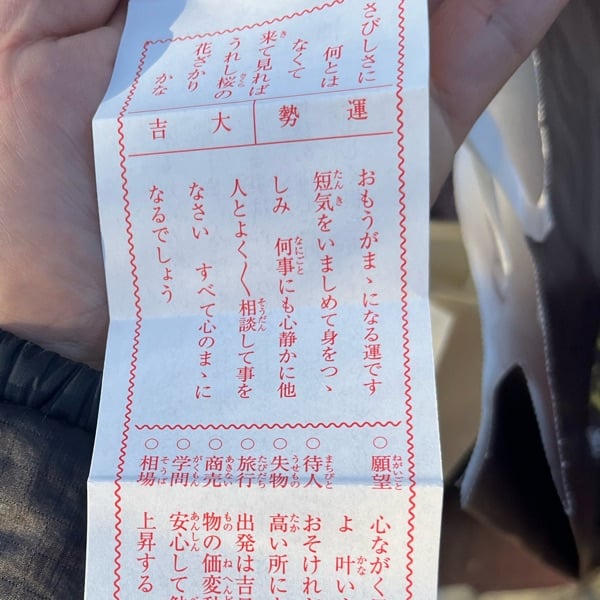 さびしさに
何とは
なくて
来て見れば
うれし桜の
花ざかり
かな
運勢
大吉
おもうがまゝになる運です
短気をいましめて身をつゝ
しみ 何事にも心静かに他
人とよく〳〵相談して事を
なさい すべて心のまゝに
なるでしょう
○願望 心ながく
よ 叶い
○待人 おそけれ
○失物 高い所に
○旅行 出発は吉
○商売 物の価変
○学問 安心して
○相場 上昇する